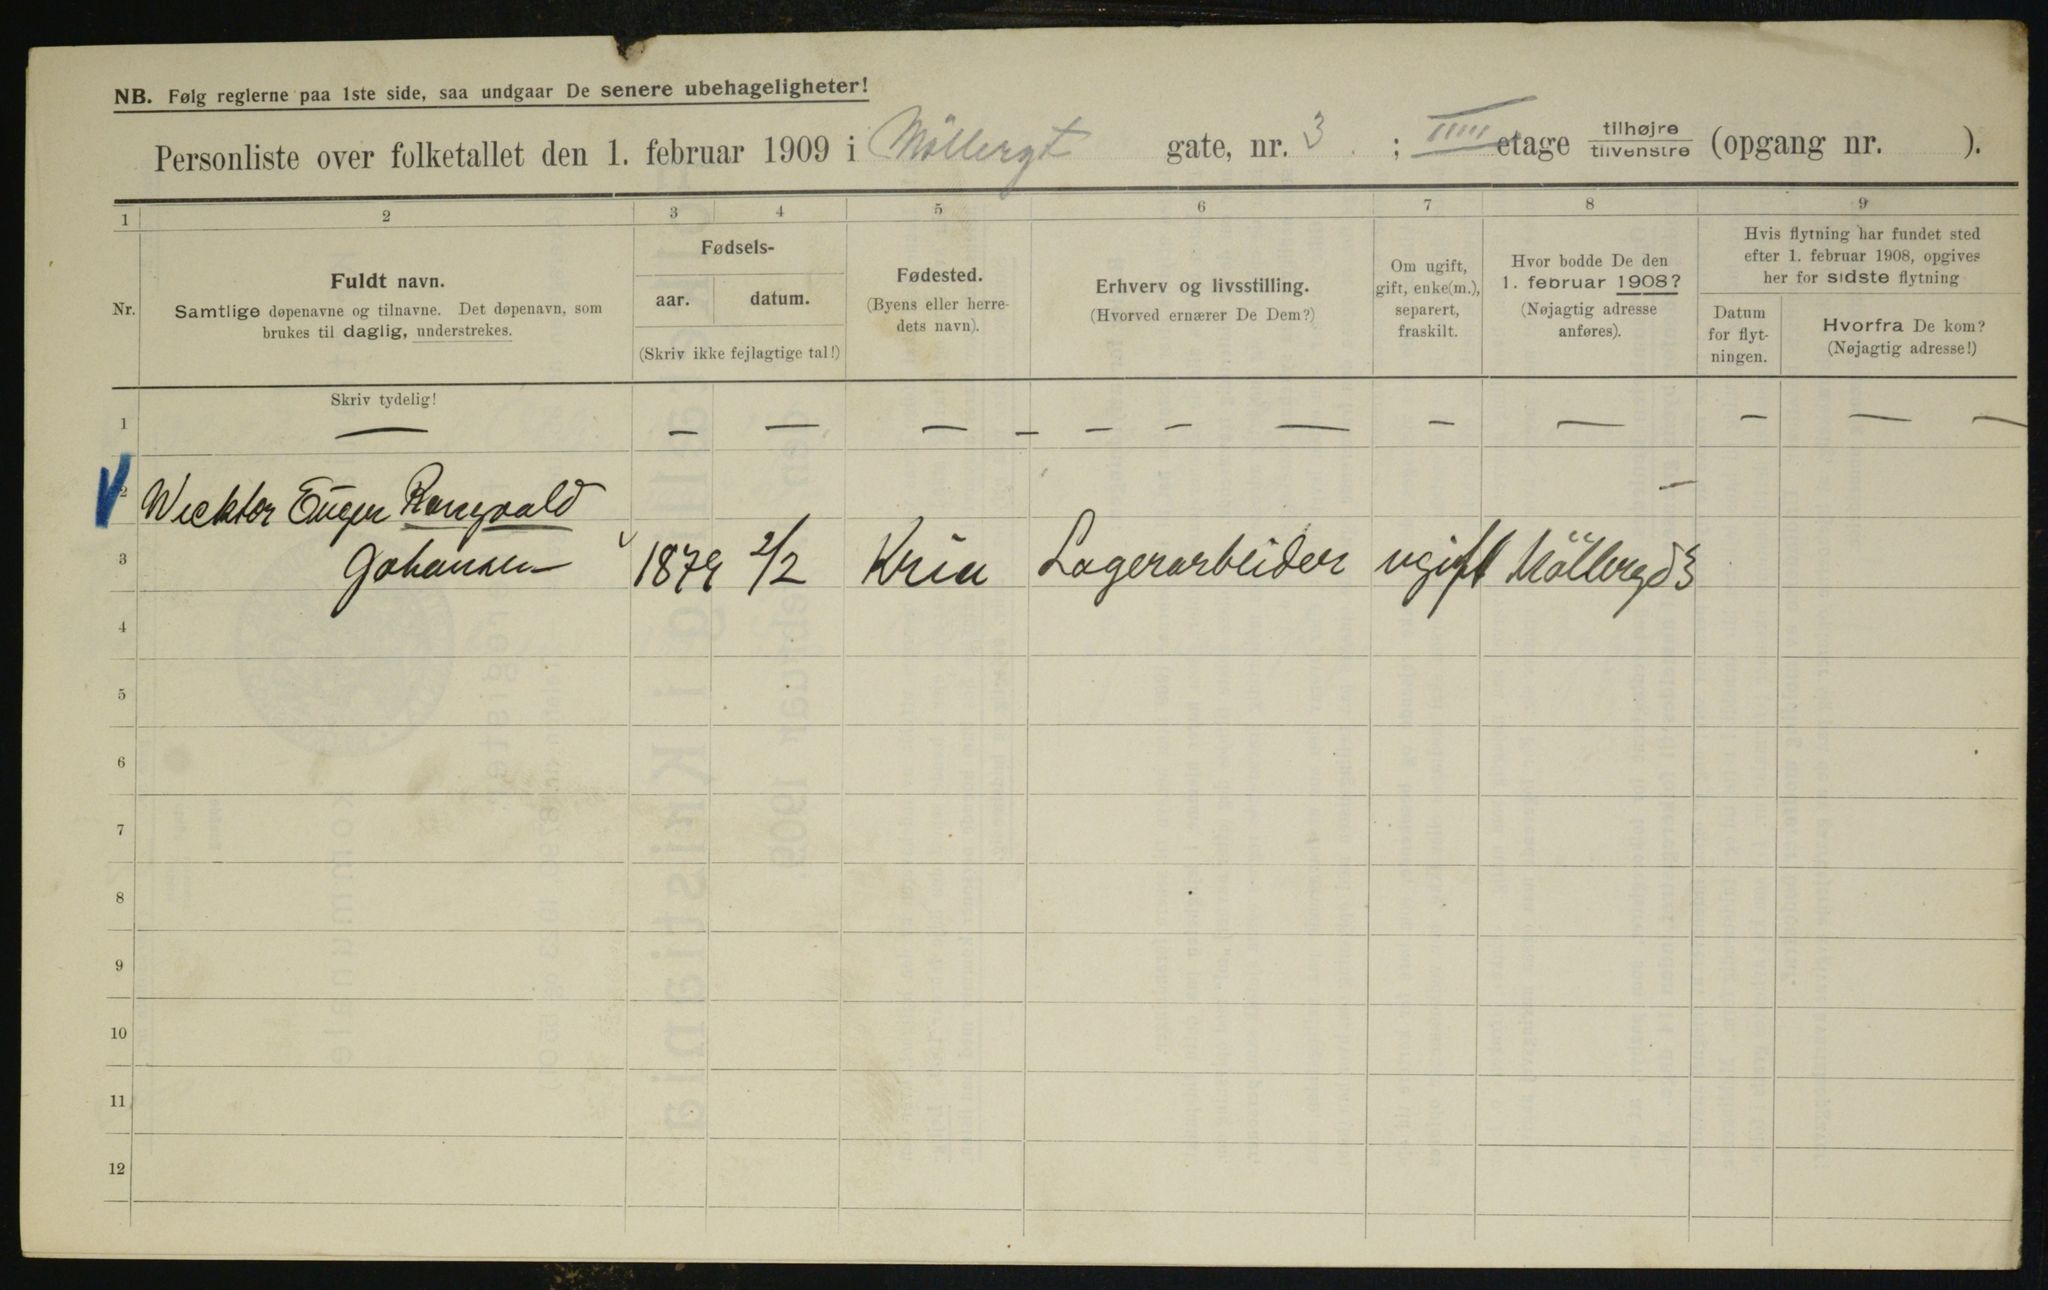 NB. Følg reglerne paa 1ste side, saa undgaar De senere ubehageligheter!
Personliste over folketallet den 1. februar 1909 i Möllergt gate, nr. 3 ; IIIII etage tilhøjre tilvenstre (opgang nr. ).
1 2 3 4 5 6 7 8 9
Nr.
Fuldt navn.
Samtlige døpenavne og tilnavne. Det døpenavn, som
brukes til daglig, understrekes.
Fødsels-
aar. datum.
(Skriv ikke fejlagtige tal!)
Fødested.
(Byens eller herre-
dets navn).
Erhverv og livsstilling.
(Hvorved ernærer De Dem?)
Om ugift,
gift, enke(m.),
separert,
fraskilt.
Hvor bodde De den
1. februar 1908?
(Nøjagtig adresse
anføres).
Hvis flytning har fundet sted
efter 1. februar 1908, opgives
her for sidste flytning
Datum
for flyt-
ningen.
Hvorfra De kom?
(Nøjagtig adresse!)
Skriv tydelig!
1 — — — — — — — — — — — — —
2 Wicktor Eugen Rangvald —
3 Johansen 1879 2/2 Kria Lagerarbeider ugift Möllergd 3
4
5
6
7
8
9
10
11
12